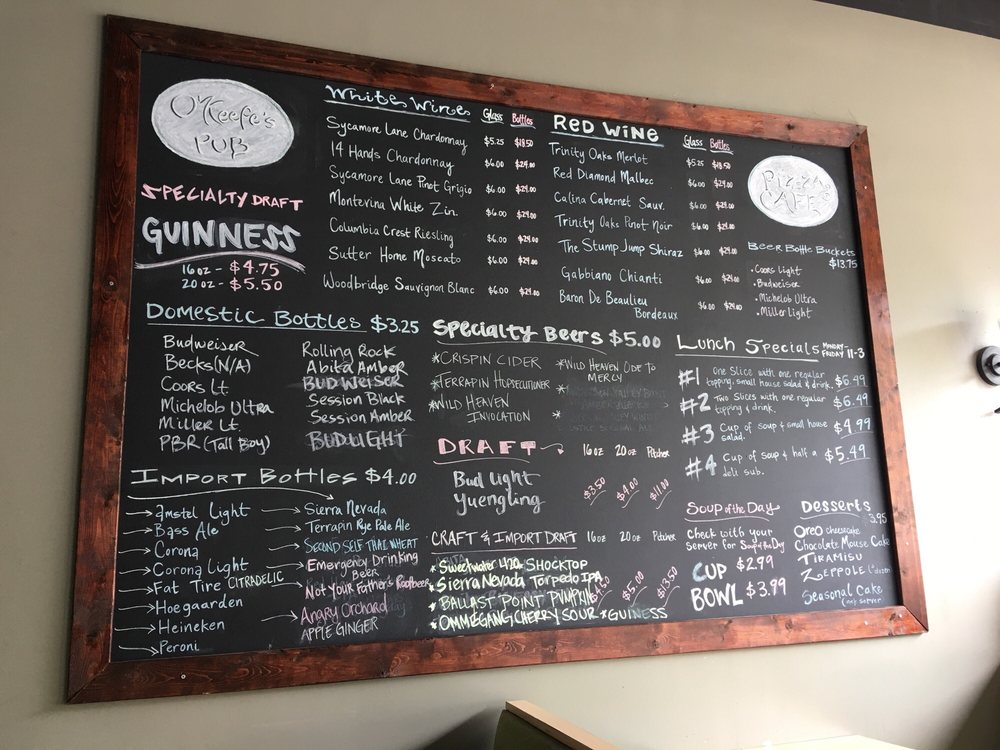 O'Keefe's
PUB
SPECIALTY DRAFT
GUINNESS
16 oz - $4.75
20 oz - $5.50
White Wine Glass Bottles
Sycamore Lane Chardonnay $5.25 $18.50
14 Hands Chardonnay $6.00 $24.00
Sycamore Lane Pinot Grigio $6.00 $24.00
Montevina White Zin. $6.00 $24.00
Columbia Crest Riesling $6.00 $24.00
Sutter Home Moscato $6.00 $24.00
Woodbridge Sauvignon Blanc $6.00 $24.00
RED WINE Glass Bottles
Trinity Oaks Merlot $5.25 $18.50
Red Diamond Malbec $6.00 $24.00
Calina Cabernet Sauv. $6.00 $24.00
Trinity Oaks Pinot Noir $6.00 $24.00
The Stump Jump Shiraz $6.00 $24.00
Gabbiano Chianti $6.00 $24.00
Baron De Beaulieu $6.00 $24.00
Bordeaux
Pizza
CAFE
Beer Bottle Buckets
$13.75
• Coors Light
• Budweiser
• Michelob Ultra
• Miller Light
Domestic Bottles $3.25
Budweiser
Becks (N/A)
Coors Lt.
Michelob Ultra
Miller Lt.
PBR (Tall Boy)
Rolling Rock
Abita Amber
BUDWEISER
Session Black
Session Amber
BUDLIGHT
Import Bottles $4.00
Amstel Light
Bass Ale
Corona
Corona Light
Fat Tire CITRADELIC
Hoegaarden
Heineken
Peroni
Sierra Nevada
Terrapin Rye Pale Ale
SECOND SELF THAI WHEAT
Emergency Drinking
Beer
Not Your Father's Rootbeer
Angry Orchard
APPLE GINGER
Specialty Beers $5.00
*CRISPIN CIDER
*TERRAPIN HOPSECUTIONER
*WILD HEAVEN
INVOCATION
*WILD HEAVEN ODE TO
MERCY
*
*
DRAFT 16 oz 20 oz Pitcher
Bud Light
Yuengling
$3.50 $4.00 $11.00
CRAFT & IMPORT DRAFT 16 oz 20 oz Pitcher
* Sweetwater 420 * SHOCKTOP
* Sierra Nevada Torpedo IPA
* BALLAST POINT PUMPKIN
* OMMEGANG CHERRY SOUR * GUINESS
$5.00 $13.50
Lunch Specials MONDAY-
FRIDAY 11-3
#1 One Slice with one regular
topping, small house salad & drink. $6.99
#2 Two Slices with one regular
topping & drink. $6.49
#3 Cup of soup & small house
salad. $4.99
#4 Cup of soup & half a
deli sub. $5.49
Soup of the Day
Check with your
server for Soup of the Day
CUP $2.99
BOWL $3.99
Desserts
3.95
Oreo cheesecake
Chocolate Mouse Cake
TIRAMISU
ZEPPOLE
Seasonal Cake